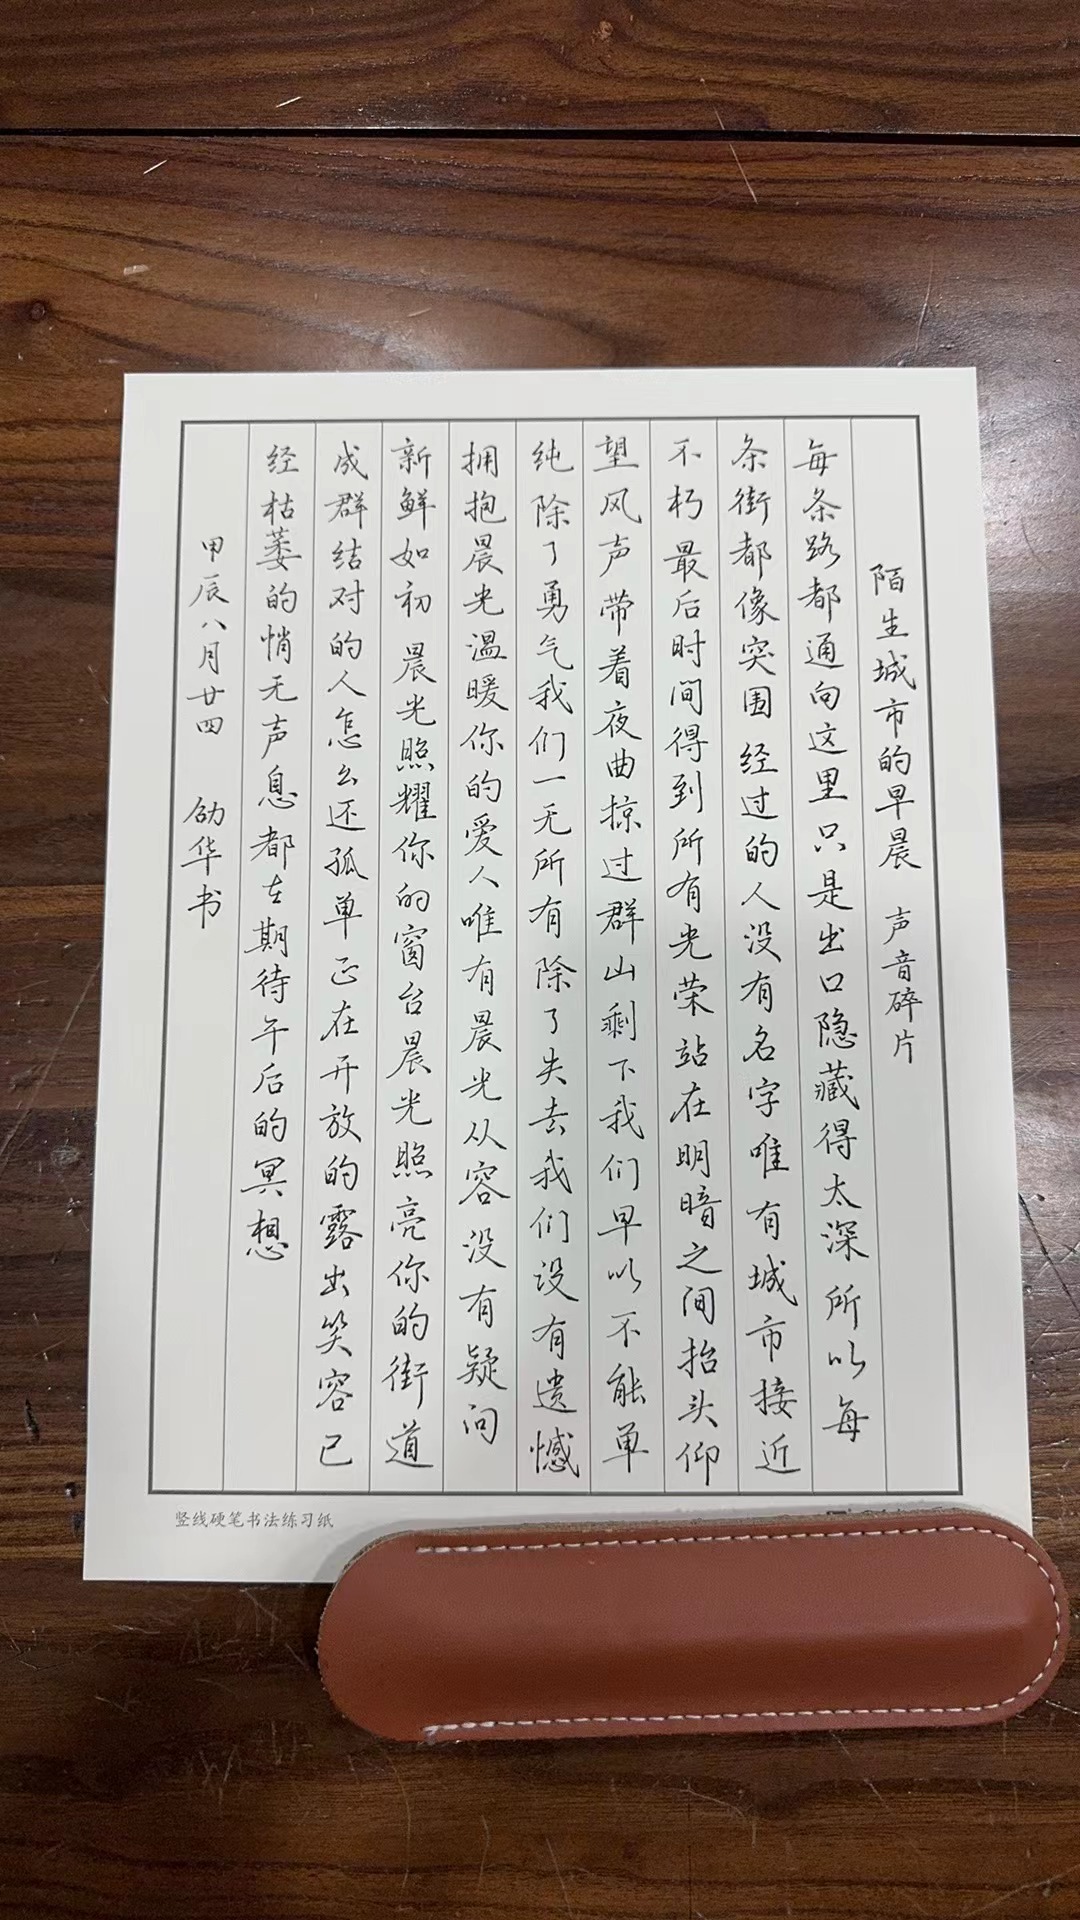 陌生城市的早晨 声音碎片
每条路都通向这里只是出口隐藏得太深所以每
条街都像突围 经过的人没有名字唯有城市接近
不朽最后时间得到所有光荣站在明暗之间抬头仰
望风声带着夜曲掠过群山剩下我们早以不能单
纯除了勇气我们一无所有除了失去我们没有遗憾
拥抱晨光温暖你的爱人唯有晨光从容没有疑问
新鲜如初 晨光照耀你的窗台晨光照亮你的街道
成群结对的人怎么还孤单正在开放的露出笑容已
经枯萎的悄无声息都在期待午后的冥想
甲辰八月廿四 劭华书
竖线硬笔书法练习纸